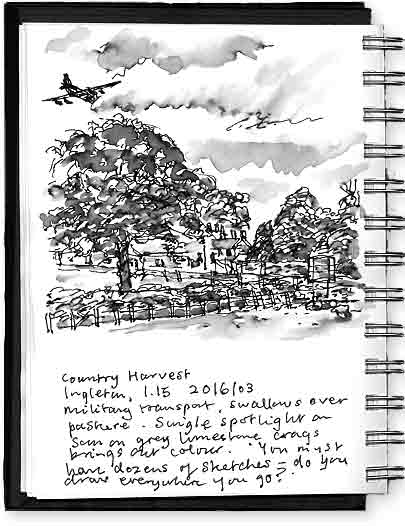 Country Harvest
Ingleton, 1.15 2016/03
military transport, swallows over
pasture. Single spotlight on
Sun on grey limestone crags
brings out colour. 'You must
have dozens of sketches – do you
draw everywhere you go?'